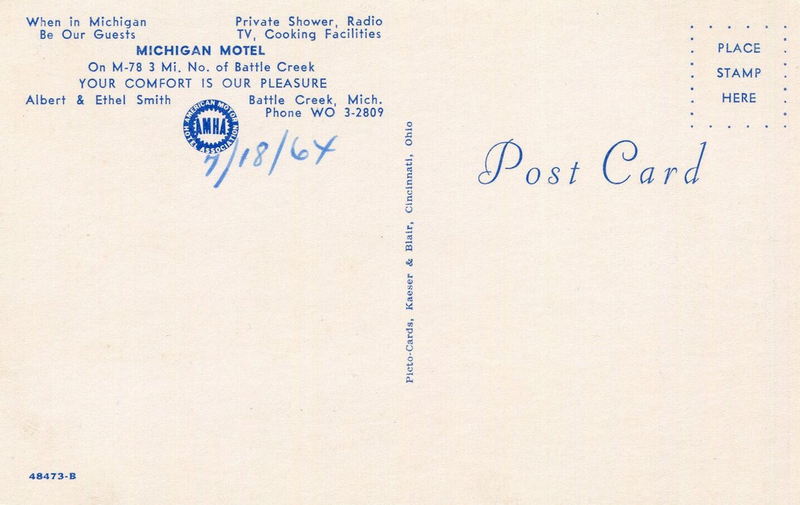 When in Michigan
Be Our Guests
Private Shower, Radio
TV, Cooking Facilities
MICHIGAN MOTEL
On M-78 3 Mi. No. of Battle Creek
YOUR COMFORT IS OUR PLEASURE
Albert & Ethel Smith
Battle Creek, Mich.
Phone WO 3-2809
AMERICAN MOTOR
AMHA
HOTEL ASSOCIATION
7/18/64
Picto-Cards, Kaeser & Blair, Cincinnati, Ohio
Post Card
PLACE
STAMP
HERE
48473-B